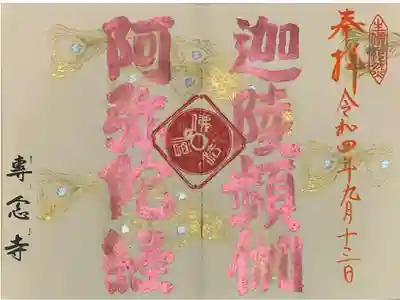 奉拝
令和四年九月十三日
迦陵頻伽
阿弥陀経
専念寺